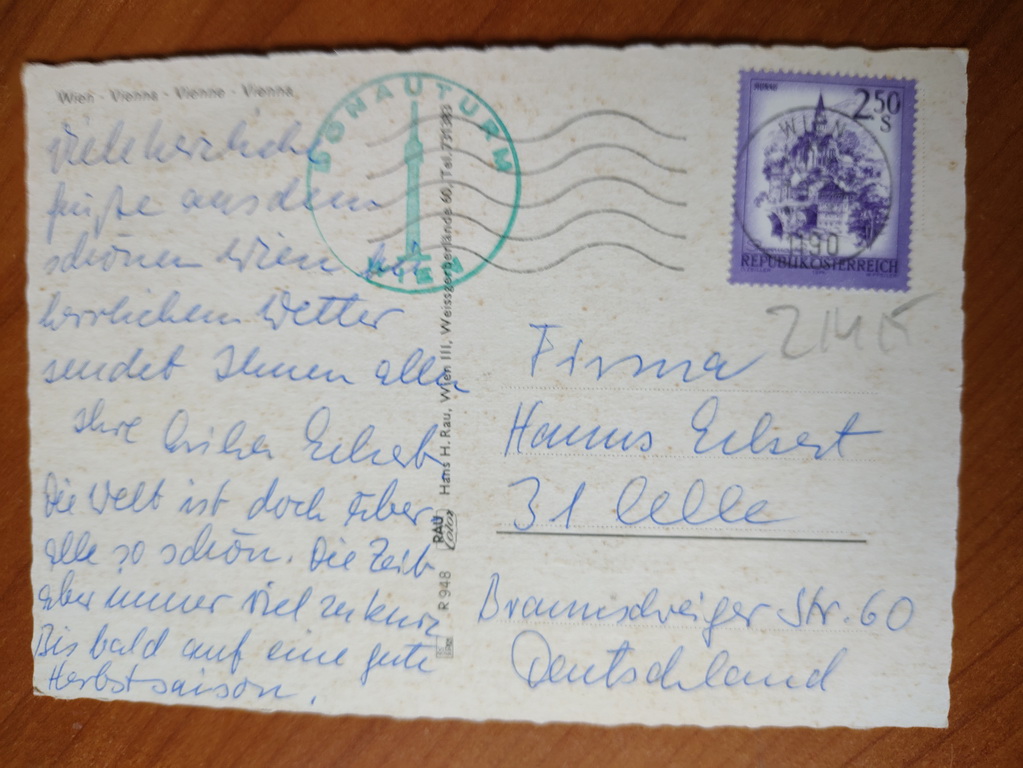 Wien - Vienna - Vienne - Vienna
Viele herzliche
Grüße aus dem
schönen Wien bei
herrlichem Wetter
sendet Ihnen allen
Ihre Eckert
Die Welt ist doch über
alle so schön. Die Zeit
aber immer viel zu kurz
Bis bald auf eine gute
Herbstsaison.
DONAUTURM
WIEN
R 948 RAU Color Hans H. Rau, Wien III, Weissgerberlände 60, Tel.
2 50
S
REPUBLIK ÖSTERREICH
WIEN
1190
Firma
Hanns Eckert
31 Celle
Braunschweiger Str. 60
Deutschland